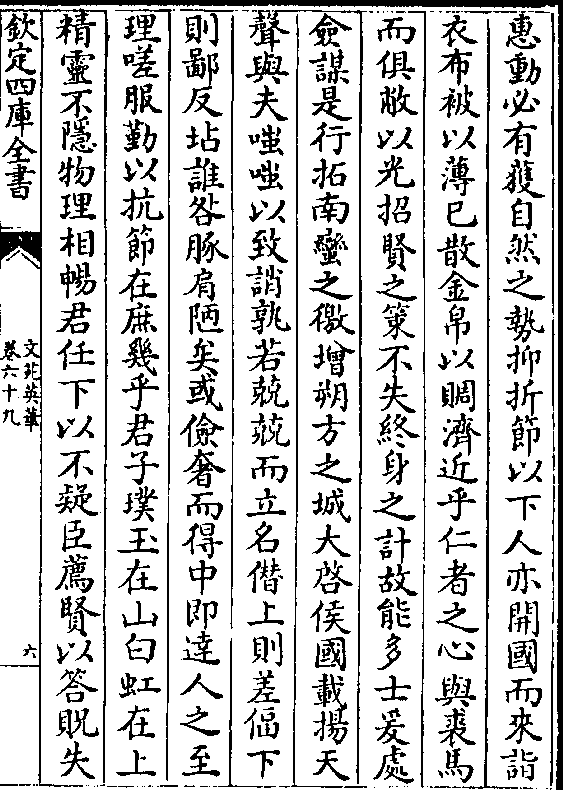 惠動必有蕿自然之勢抑折節以下人亦開國而來詣
衣布被以薄己散金帛以賙濟近乎仁者之心與裘馬
而俱敝以光招賢之策不失終身之計故能多士爰處
僉謀是行拓南蠻之徼增朔方之城大啓侯國載揚天
聲與夫嗤嗤以致誚孰若兢兢而立名僭上則差偪下
則鄙反坫誰咎豚肩陋矣或儉奢而得中即達人之至
理嗟服勤以抗節在庶幾乎君子璞玉在山白虹在上
精靈不隱物理相暢君任下以不疑臣薦賢以答貺失
欽定四庫全書
文苑英華
卷六十九
六